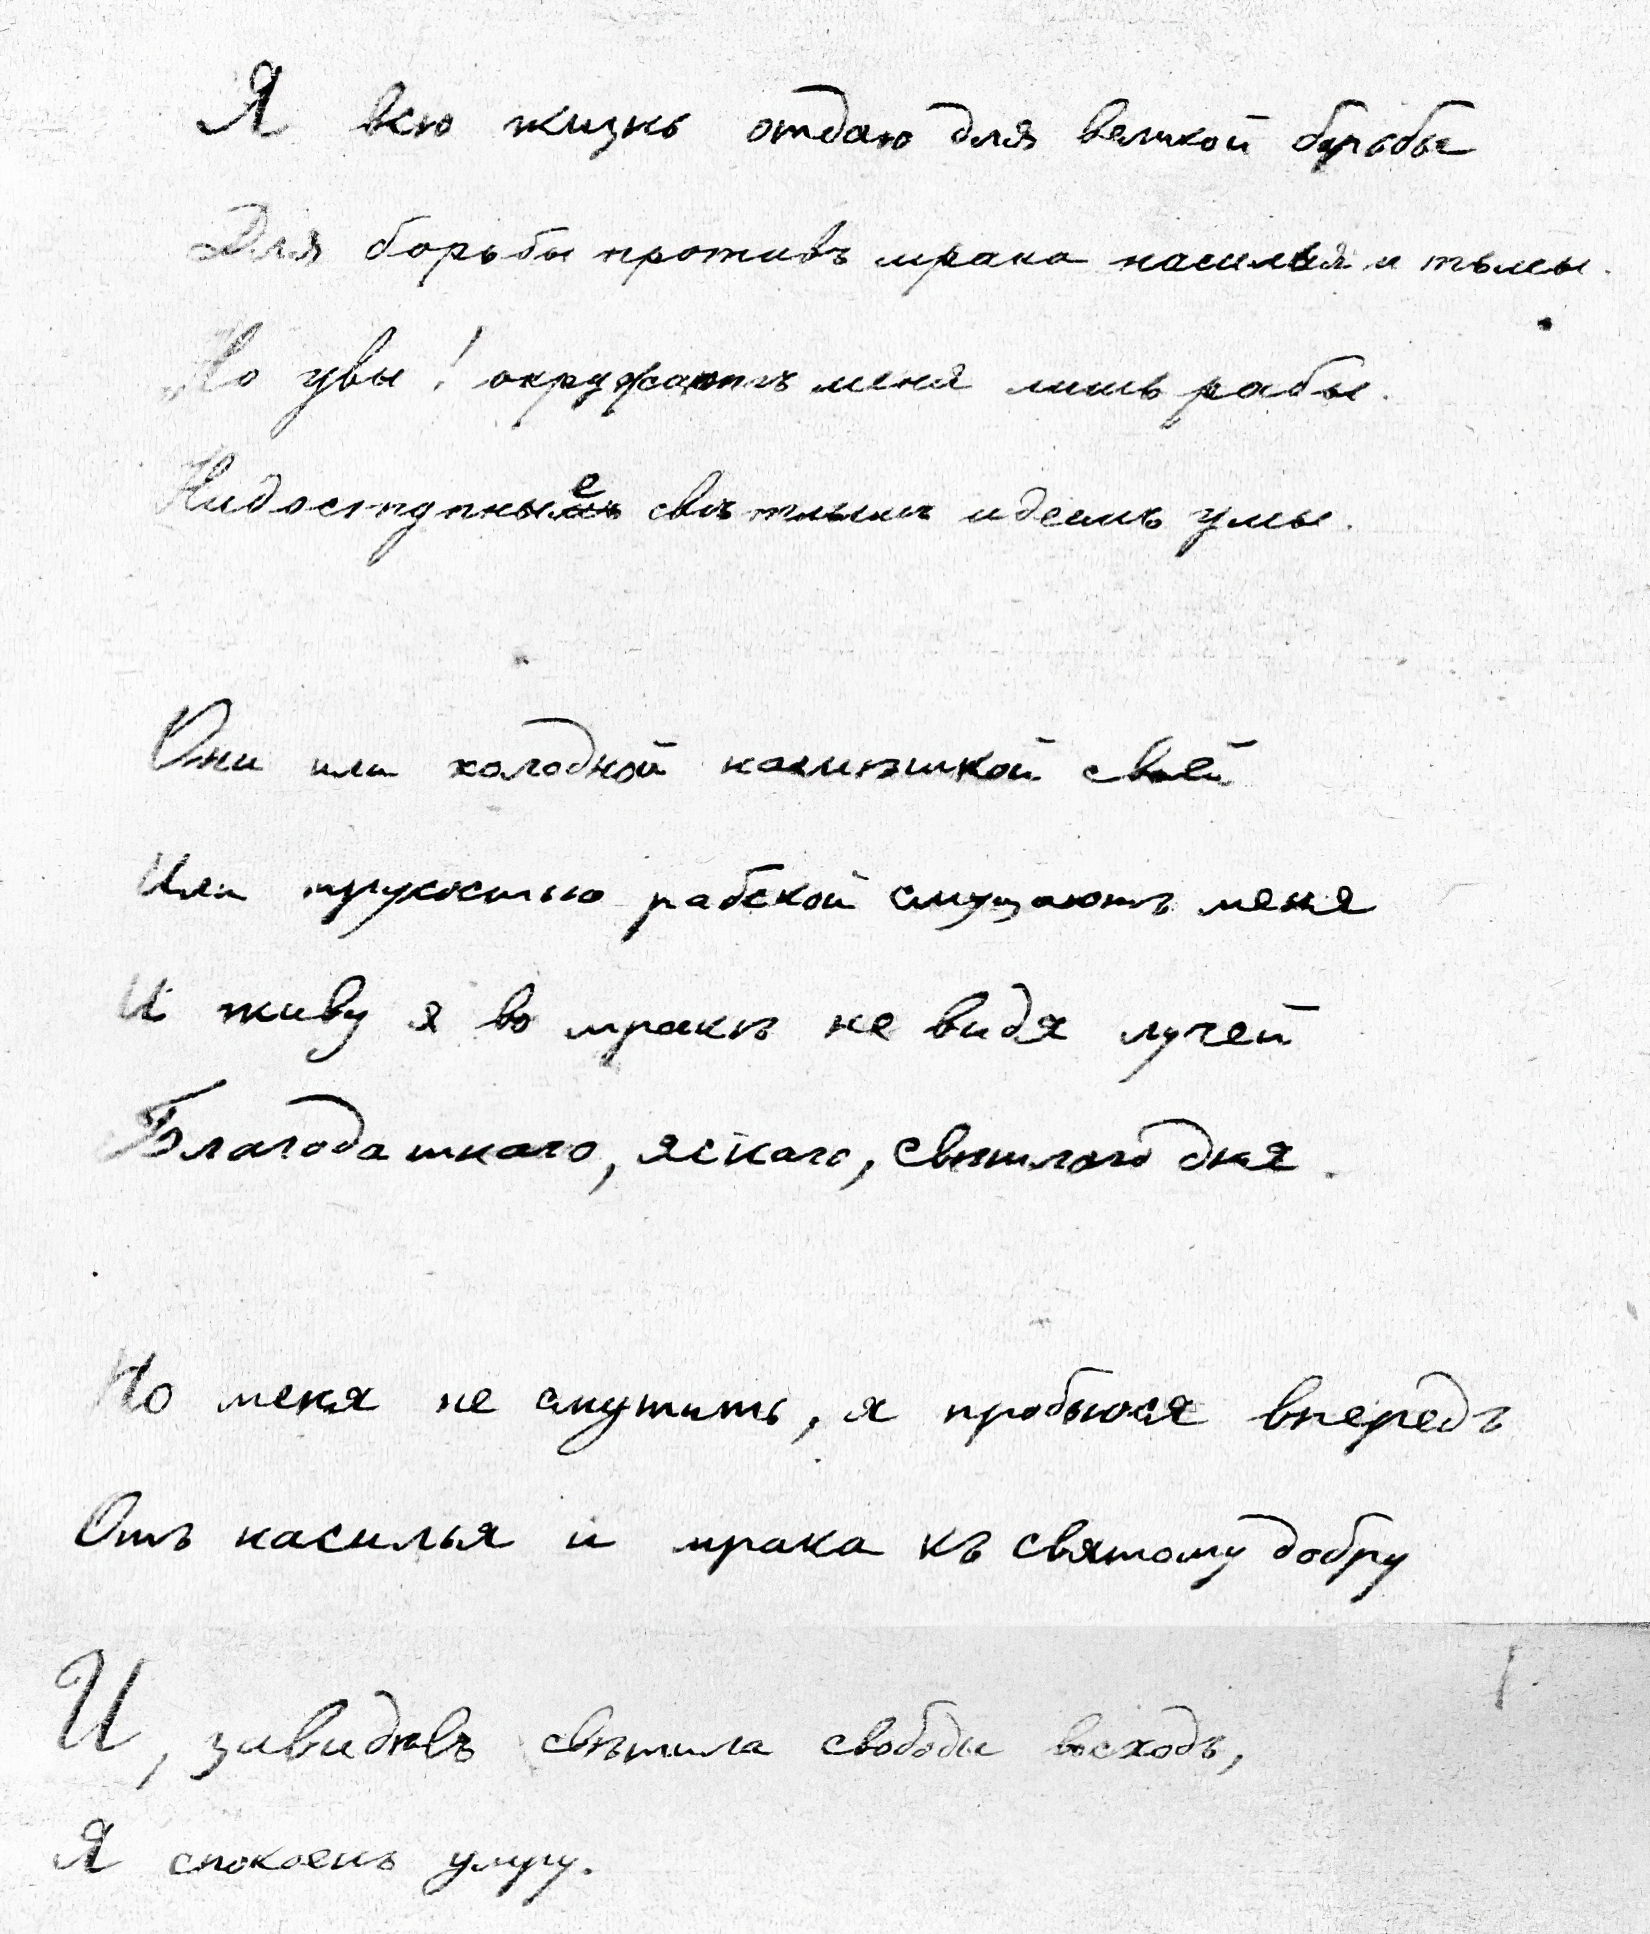 Я всю жизнь отдаю для великой борьбы
Для борьбы противъ мрака насилья и тьмы.
Но увы! окружаютъ меня лишь рабы.
Нидоступные свѣтлымъ идеямъ умы.
Они или холодной насмѣшкой своей
Или трусостью рабской смущаютъ меня
И живу я во мракѣ не видя лучей
Благодатнаго, яснаго, свѣтлаго дня.
Но меня не смутить, я пробьюся впередъ
Отъ насилья и мрака къ святому добру
И, завидѣвъ свѣтила свободы восходъ,
Я спокоенъ умру.